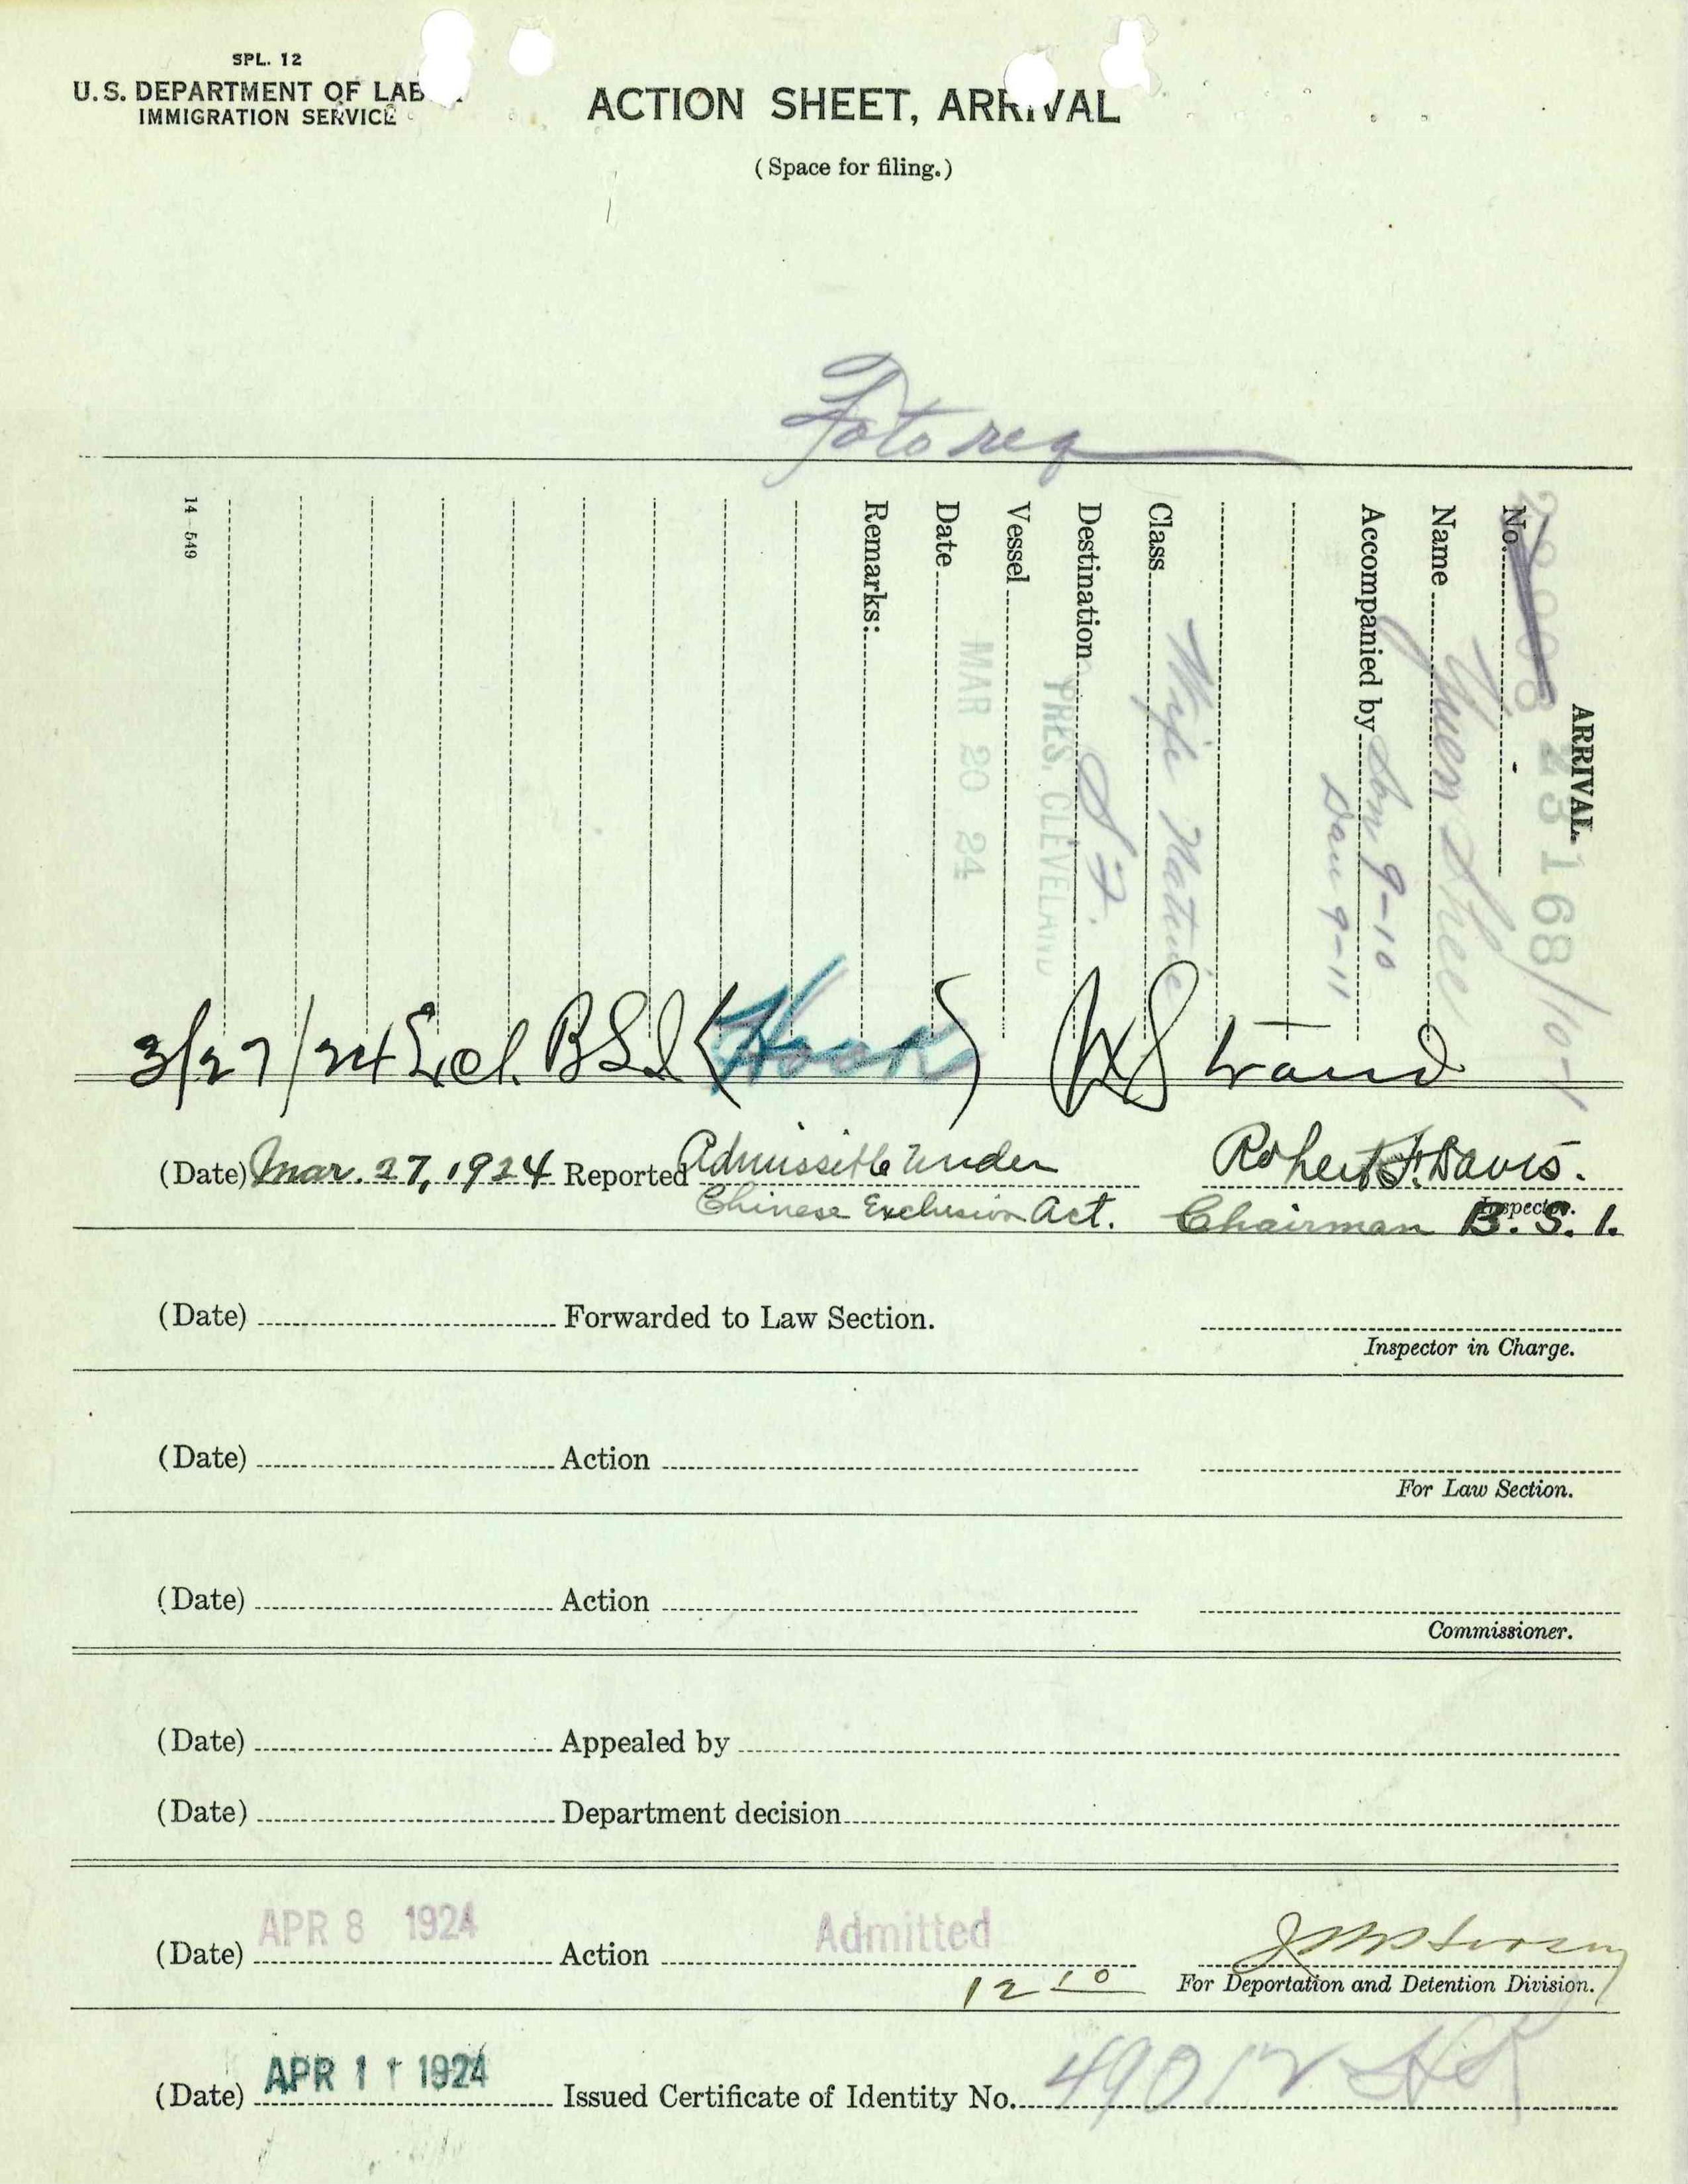 SPL. 12
U.S. DEPARTMENT OF LAB
IMMIGRATION SERVICE
ACTION SHEET, ARRIVAL
(Space for filing.)
Foto req
ARRIVAL.
No. 23168/10-1
Name Yuen Shee
Accompanied by Son 9-10
Dau 9-11
Class Wife Native
Destination S.F.
Vessel PRES. CLEVELAND
Date MAR 20 24
Remarks:
14-549
3/27/24 BSI (Hook) Strand
(Date) Mar. 27, 1924 Reported Admissible Under Robert F. Davis.
Inspector.
Chinese Exclusion Act. Chairman B. S. I.
(Date) Forwarded to Law Section.
Inspector in Charge.
(Date) Action
For Law Section.
(Date) Action
Commissioner.
(Date) Appealed by
(Date) Department decision
(Date) APR 8 1924 Action Admitted
12 10 For Deportation and Detention Division.
(Date) APR 11 1924 Issued Certificate of Identity No. 49012